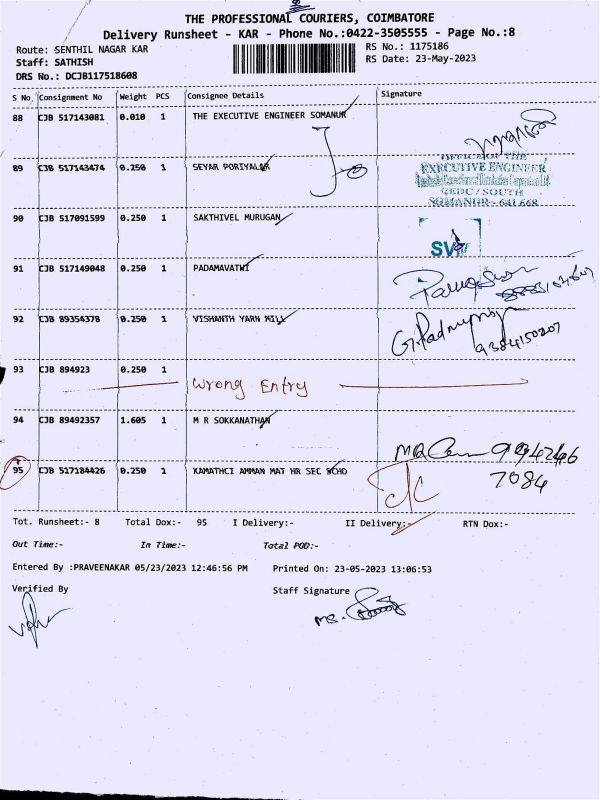 THE PROFESSIONAL COURIERS, COIMBATORE
Delivery Runsheet - KAR - Phone No.:0422-3505555 - Page No.:8
Route: SENTHIL NAGAR KAR
RS No.: 1175186
Staff: SATHISH
RS Date: 23-May-2023
DRS No.: DCJB117518608
S No Consignment No Weight PCS Consignee Details Signature
88 CJB 517143081 0.010 1 THE EXECUTIVE ENGINEER SOMANUR
OFFICE OF THE
89 CJB 517143474 0.250 1 SEYAR PORIYALAR
EXECUTIVE ENGINEER
GEDC / SOUTH
SOMANUR - 641 668
90 CJB 517091599 0.250 1 SAKTHIVEL MURUGAN
91 CJB 517149048 0.250 1 PADAMAVATHI
92 CJB 89354378 0.250 1 VISHANTH YARN MILL
9384150207
93 CJB 894923 0.250 1
Wrong Entry
94 CJB 89492357 1.605 1 M R SOKKANATHAN
95 CJB 517184426 0.250 1 KAMATHCI AMMAN MAT HR SEC SCHO
7084
Tot. Runsheet:- 8 Total Dox:- 95 I Delivery:- II Delivery:- RTN Dox:-
Out Time:- In Time:- Total POD:-
Entered By :PRAVEENAKAR 05/23/2023 12:46:56 PM Printed On: 23-05-2023 13:06:53
Verified By Staff Signature